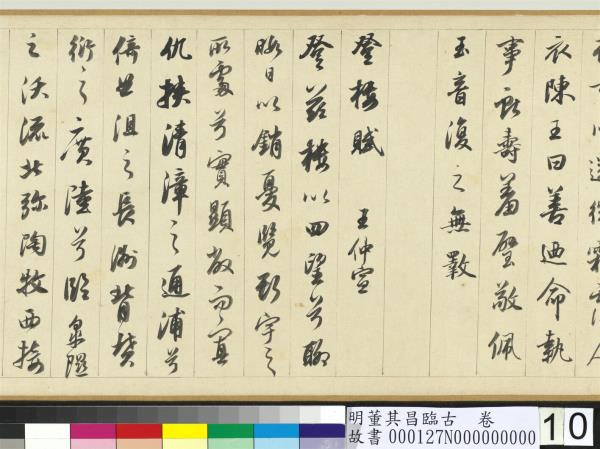 可以還微霜沾人
衣陳王曰善迺命執
事獻壽羞璧敬佩
玉音復之無斁
登樓賦 王仲宣
登茲樓以四望兮聊
暇日以銷憂覽斯宇之
所處兮實顯敞而寡
仇挾清漳之通浦兮
倚曲沮之長洲背墳
衍之廣陸兮臨皋隰
之沃流北彌陶牧西接
明董其昌臨古 卷
故書 000127N000000000
10